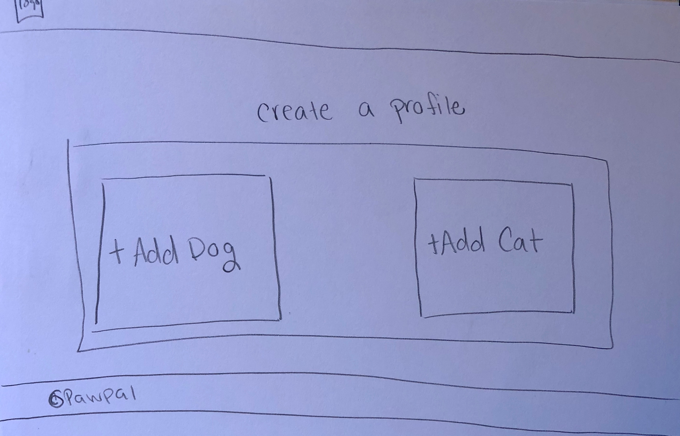 logo
create a profile
+ Add Dog
+Add Cat
©Pawpal